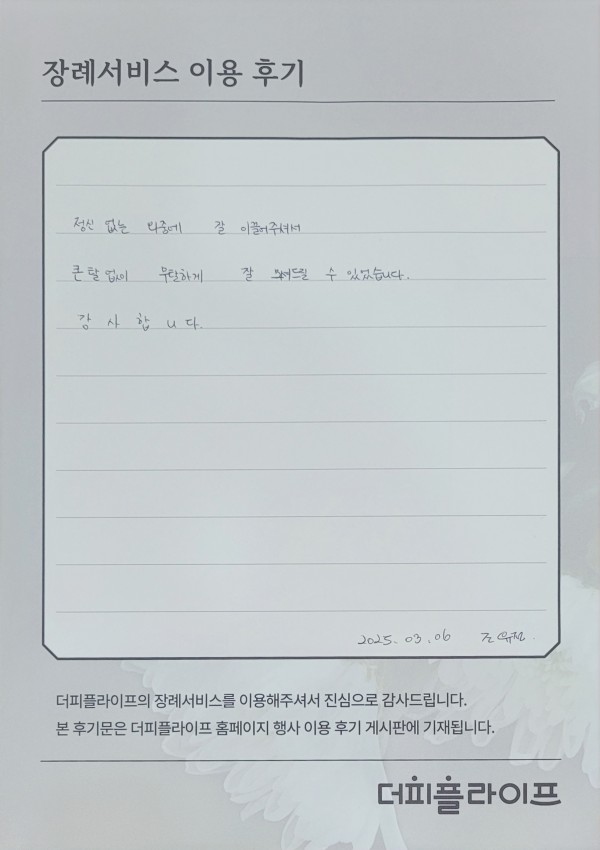 장례서비스 이용 후기
정신 없는 와중에 잘 이끌어주셔서
큰 탈 없이 무탈하게 잘 보내드릴 수 있었습니다.
감사합니다.
2025. 03. 06 조
더피플라이프의 장례서비스를 이용해주셔서 진심으로 감사드립니다.
본 후기문은 더피플라이프 홈페이지 행사 이용 후기 게시판에 기재됩니다.
더피플라이프